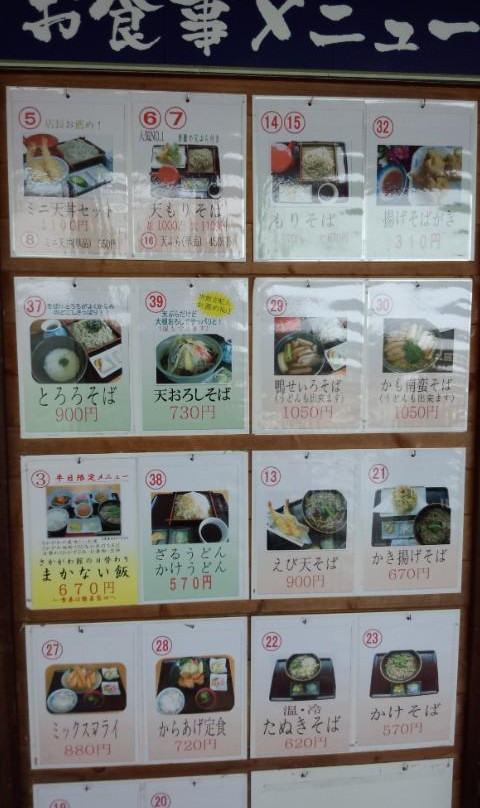 お食事メニュー
⑤ 店長お薦め！
ミニ天丼セット
1100円
⑧ ミニ天丼(単品) 550円
⑥ ⑦
人気NO.1
天もりそば
⑯ 天ぷら(単品) 450円
⑭ ⑮
もりそば
㉜
揚げそばがき
310円
㊲
とろろそば
900円
㊴
天ぷらだけど
大根おろしでサッパリと！
天おろしそば
730円
㉙
鴨せいろそば
(うどんも出来ます)
1050円
㉚
かも南蛮そば
(うどんも出来ます)
1050円
③ 平日限定メニュー
さかがわ館の日替わり
まかない飯
670円
㊳
ざるうどん
かけうどん
570円
⑬
えび天そば
900円
㉑
かき揚げそば
670円
㉗
ミックスフライ
880円
㉘
からあげ定食
720円
㉒
温・冷
たぬきそば
620円
㉓
かけそば
570円
⑲
⑳